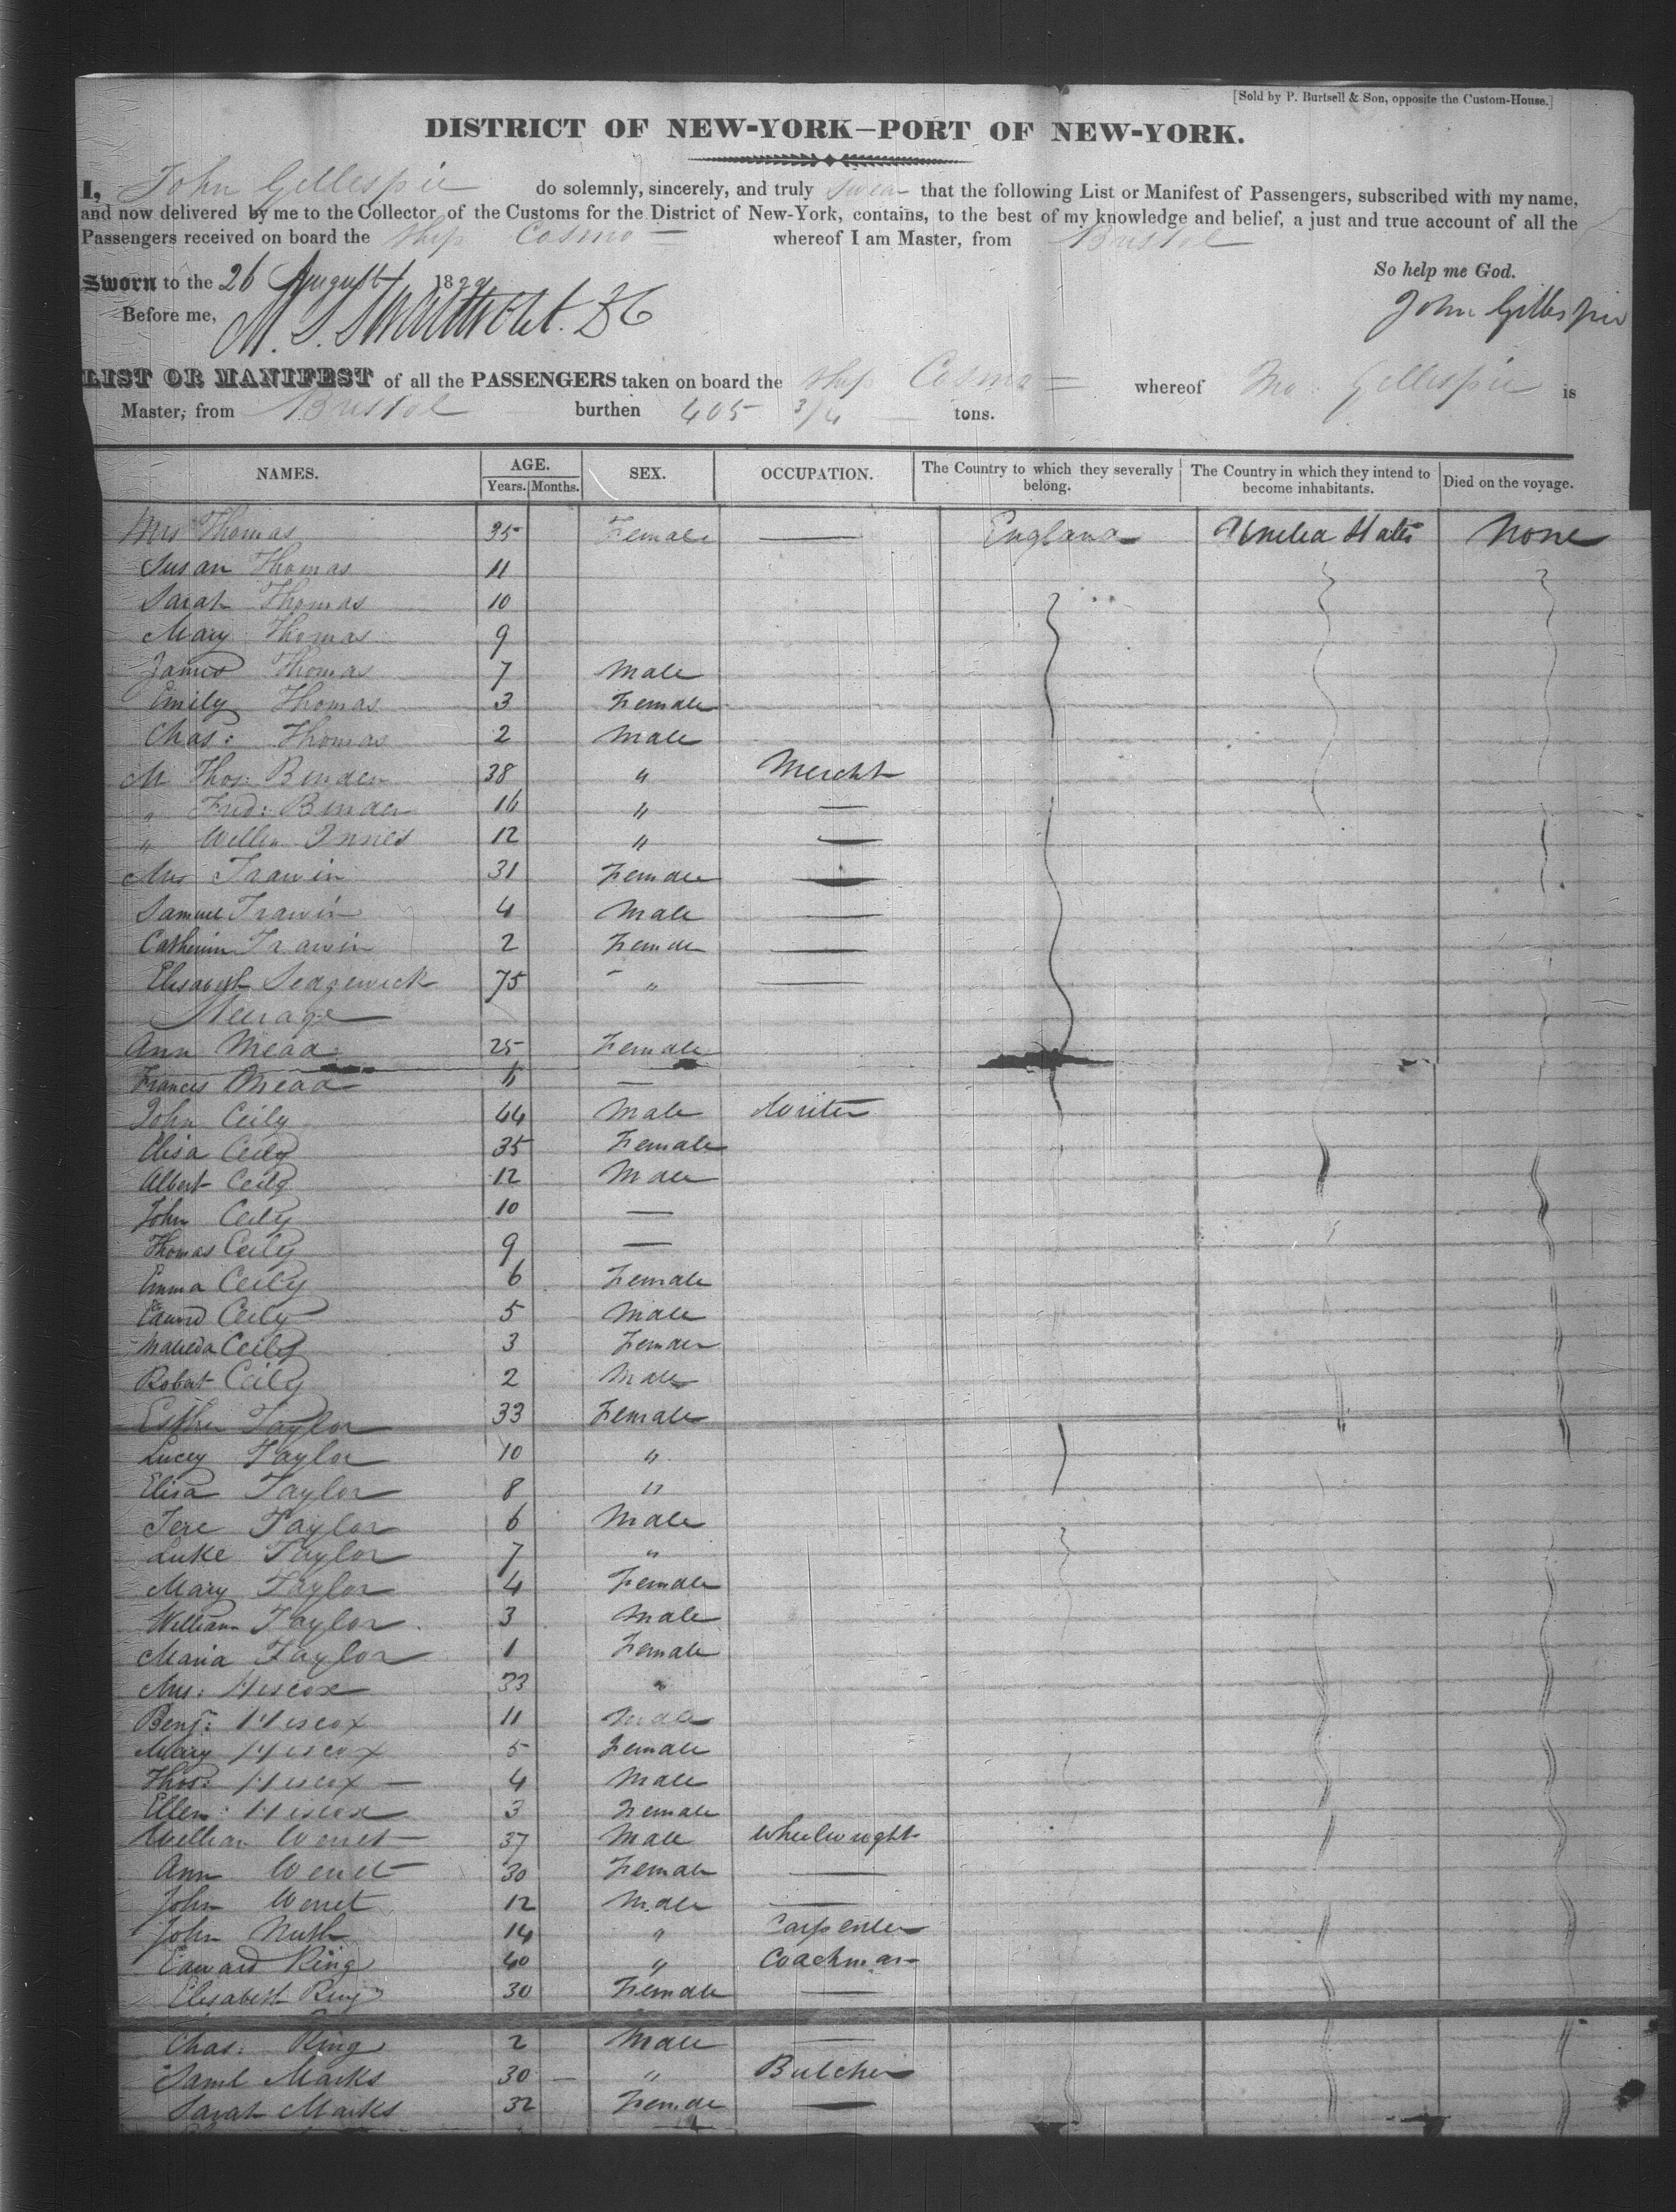 [Sold by P. Burtsell & Son, opposite the Custom-House.]
DISTRICT OF NEW-YORK—PORT OF NEW-YORK.
I, John Gillespie do solemnly, sincerely, and truly swear that the following List or Manifest of Passengers, subscribed with my name,
and now delivered by me to the Collector of the Customs for the District of New-York, contains, to the best of my knowledge and belief, a just and true account of all the
Passengers received on board the Ship Cosmo whereof I am Master, from Bristol
So help me God.
Sworn to the 26 August 1829
John Gillespie
Before me,
LIST OR MANIFEST of all the PASSENGERS taken on board the Ship Cosmo whereof Gillespie is
Master, from Bristol burthen 405 3/4 tons.
NAMES. AGE. SEX. OCCUPATION. The Country to which they severally belong. The Country in which they intend to become inhabitants. Died on the voyage.
Years. Months.
Mrs Thomas 35 Female — England United States None
Susan Thomas 11
Sarah Thomas 10
Mary Thomas 9
James Thomas 7 Male
Emily Thomas 3 Female
Chas: Thomas 2 Male
M Thos: 38 " Mercht
" Fred: 16 " —
" Willm Innes 12 " —
Mrs Trawin 31 Female —
Samuel Trawin 4 Male —
Catherin Trawin 2 Female —
Elisabeth Sedgewick 75 " —
Steerage
Ann Mead 25 Female
Frances Mead —
John Ceily 44 Male Writer
Elisa Ceily 35 Female
Albert Ceily 12 Male
John Ceily 10 —
Thomas Ceily 9 —
Emma Ceily 6 Female
Edward Ceily 5 Male
Ceily 3 Female
Robert Ceily 2 Male
Esther Taylor 33 Female
Lucey Taylor 10 "
Elisa Taylor 8 "
Jere Taylor 6 Male
Luke Taylor 7 "
Mary Taylor 4 Female
William Taylor 3 Male
Maria Taylor 1 Female
Mrs: Hiscox 33 "
Benj: Hiscox 11 Male
Mary Hiscox 5 Female
Thos: Hiscox — 4 Male
Ellen: Hiscox 3 Female
William 37 Male Wheelwright
Ann 30 Female —
John 12 Male —
John 14 " Carpenter
Edward King 40 " Coachman
Elisabeth King 30 Female —
Chas: King 2 Male —
Saml Marks 30 — " Butcher
Sarah Marks 32 Female —